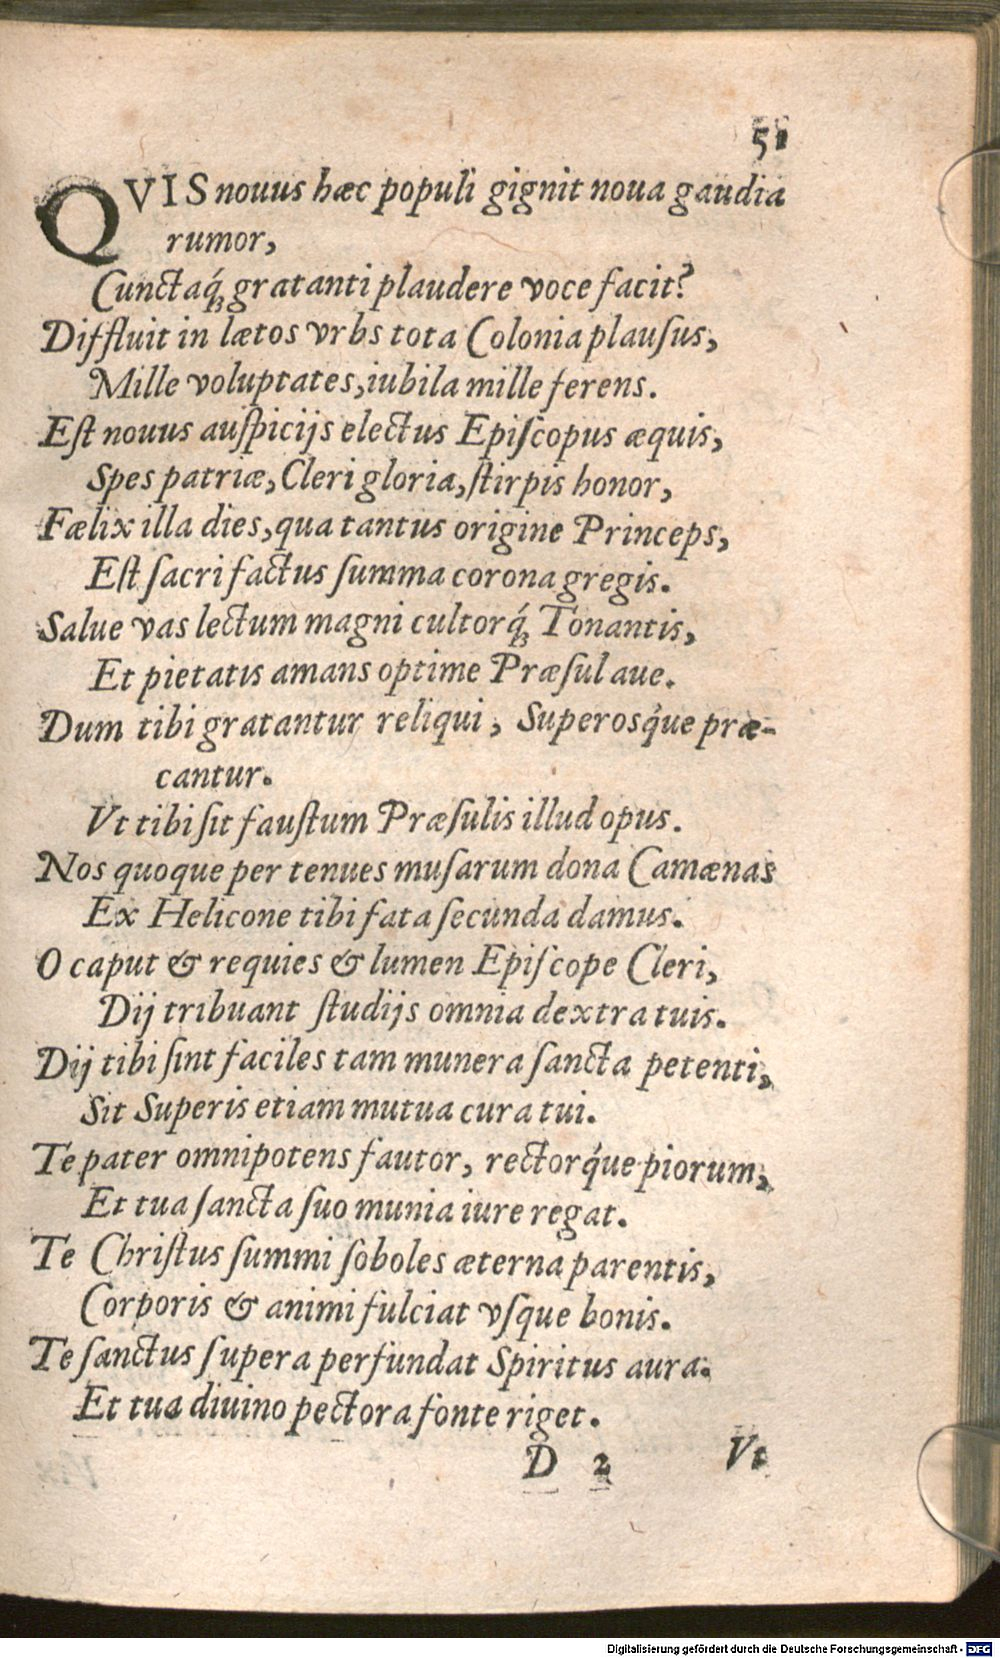 51
QVIS nouus hæc populi gignit noua gaudia
rumor,
Cunctaq́ꝫ gratanti plaudere voce facit?
Diffluit in lætos vrbs tota Colonia plauſus,
Mille voluptates, iubila mille ferens.
Eſt nouus auſpicijs electus Epiſcopus æquis,
Spes patriæ, Cleri gloria, ſtirpis honor,
Fælix illa dies, qua tantus origine Princeps,
Eſt ſacri factus ſumma corona gregis.
Salue vas lectum magni cultorq́ꝫ Tonantis,
Et pietatis amans optime Præſul aue.
Dum tibi gratantur reliqui, Superosq́ue præ-
cantur.
Vt tibi ſit fauſtum Præſulis illud opus.
Nos quoque per tenues muſarum dona Camænas
Ex Helicone tibi fata ſecunda damus.
O caput & requies & lumen Epiſcope Cleri,
Dij tribuant ſtudijs omnia dextra tuis.
Dij tibi ſint faciles tam munera ſancta petenti,
Sit Superis etiam mutua cura tui.
Te pater omnipotens fautor, rectorq́ue piorum,
Et tua ſancta ſuo munia iure regat.
Te Chriſtus ſummi ſoboles æterna parentis,
Corporis & animi fulciat vſque bonis.
Te ſanctus ſupera perfundat Spiritus aura.
Et tua diuino pectora fonte riget.
D 2 Vt
Digitalisierung gefördert durch die Deutsche Forschungsgemeinschaft - DFG